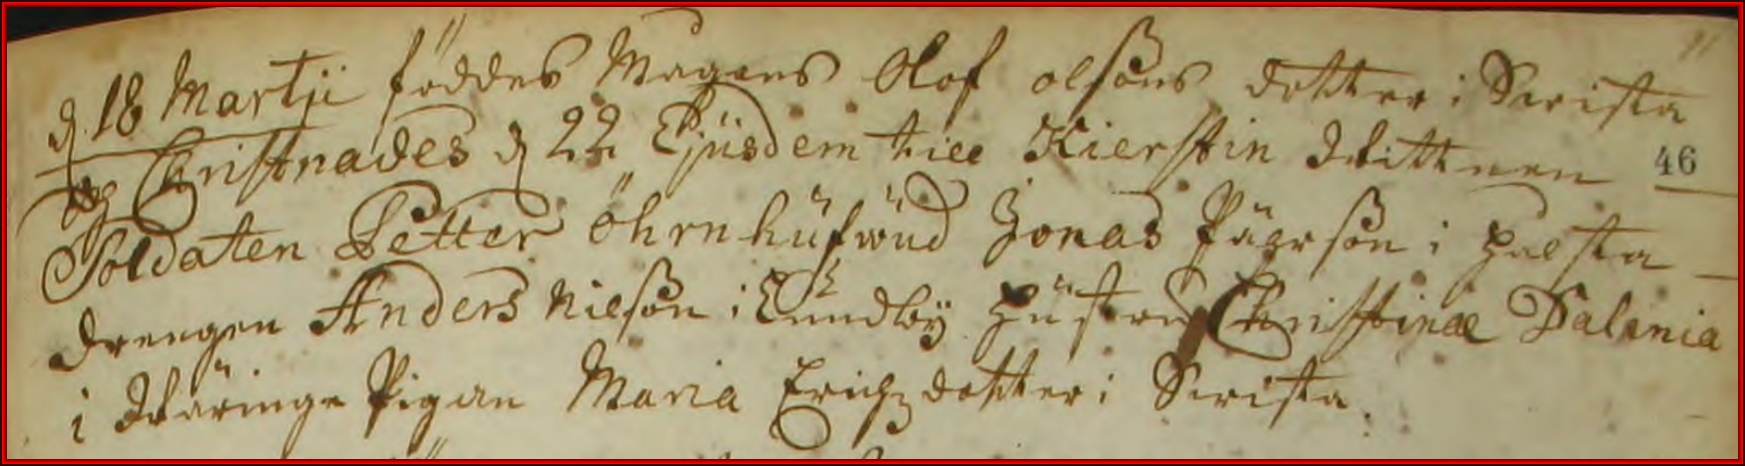 d. 18 Martji föddes Magens Olof olsons dotter i Skrista
och Christnades d 22 Ejusdem till Kierstin Wittnen 46
Soldaten Petter Öhrnhüfwud Jonas Päerson i Halsta
drengen Anders Nilson i Lündby Hüstru Christinæ Dalinia
i Wäringe Pigan Maria Erichzdotter i Skrista.